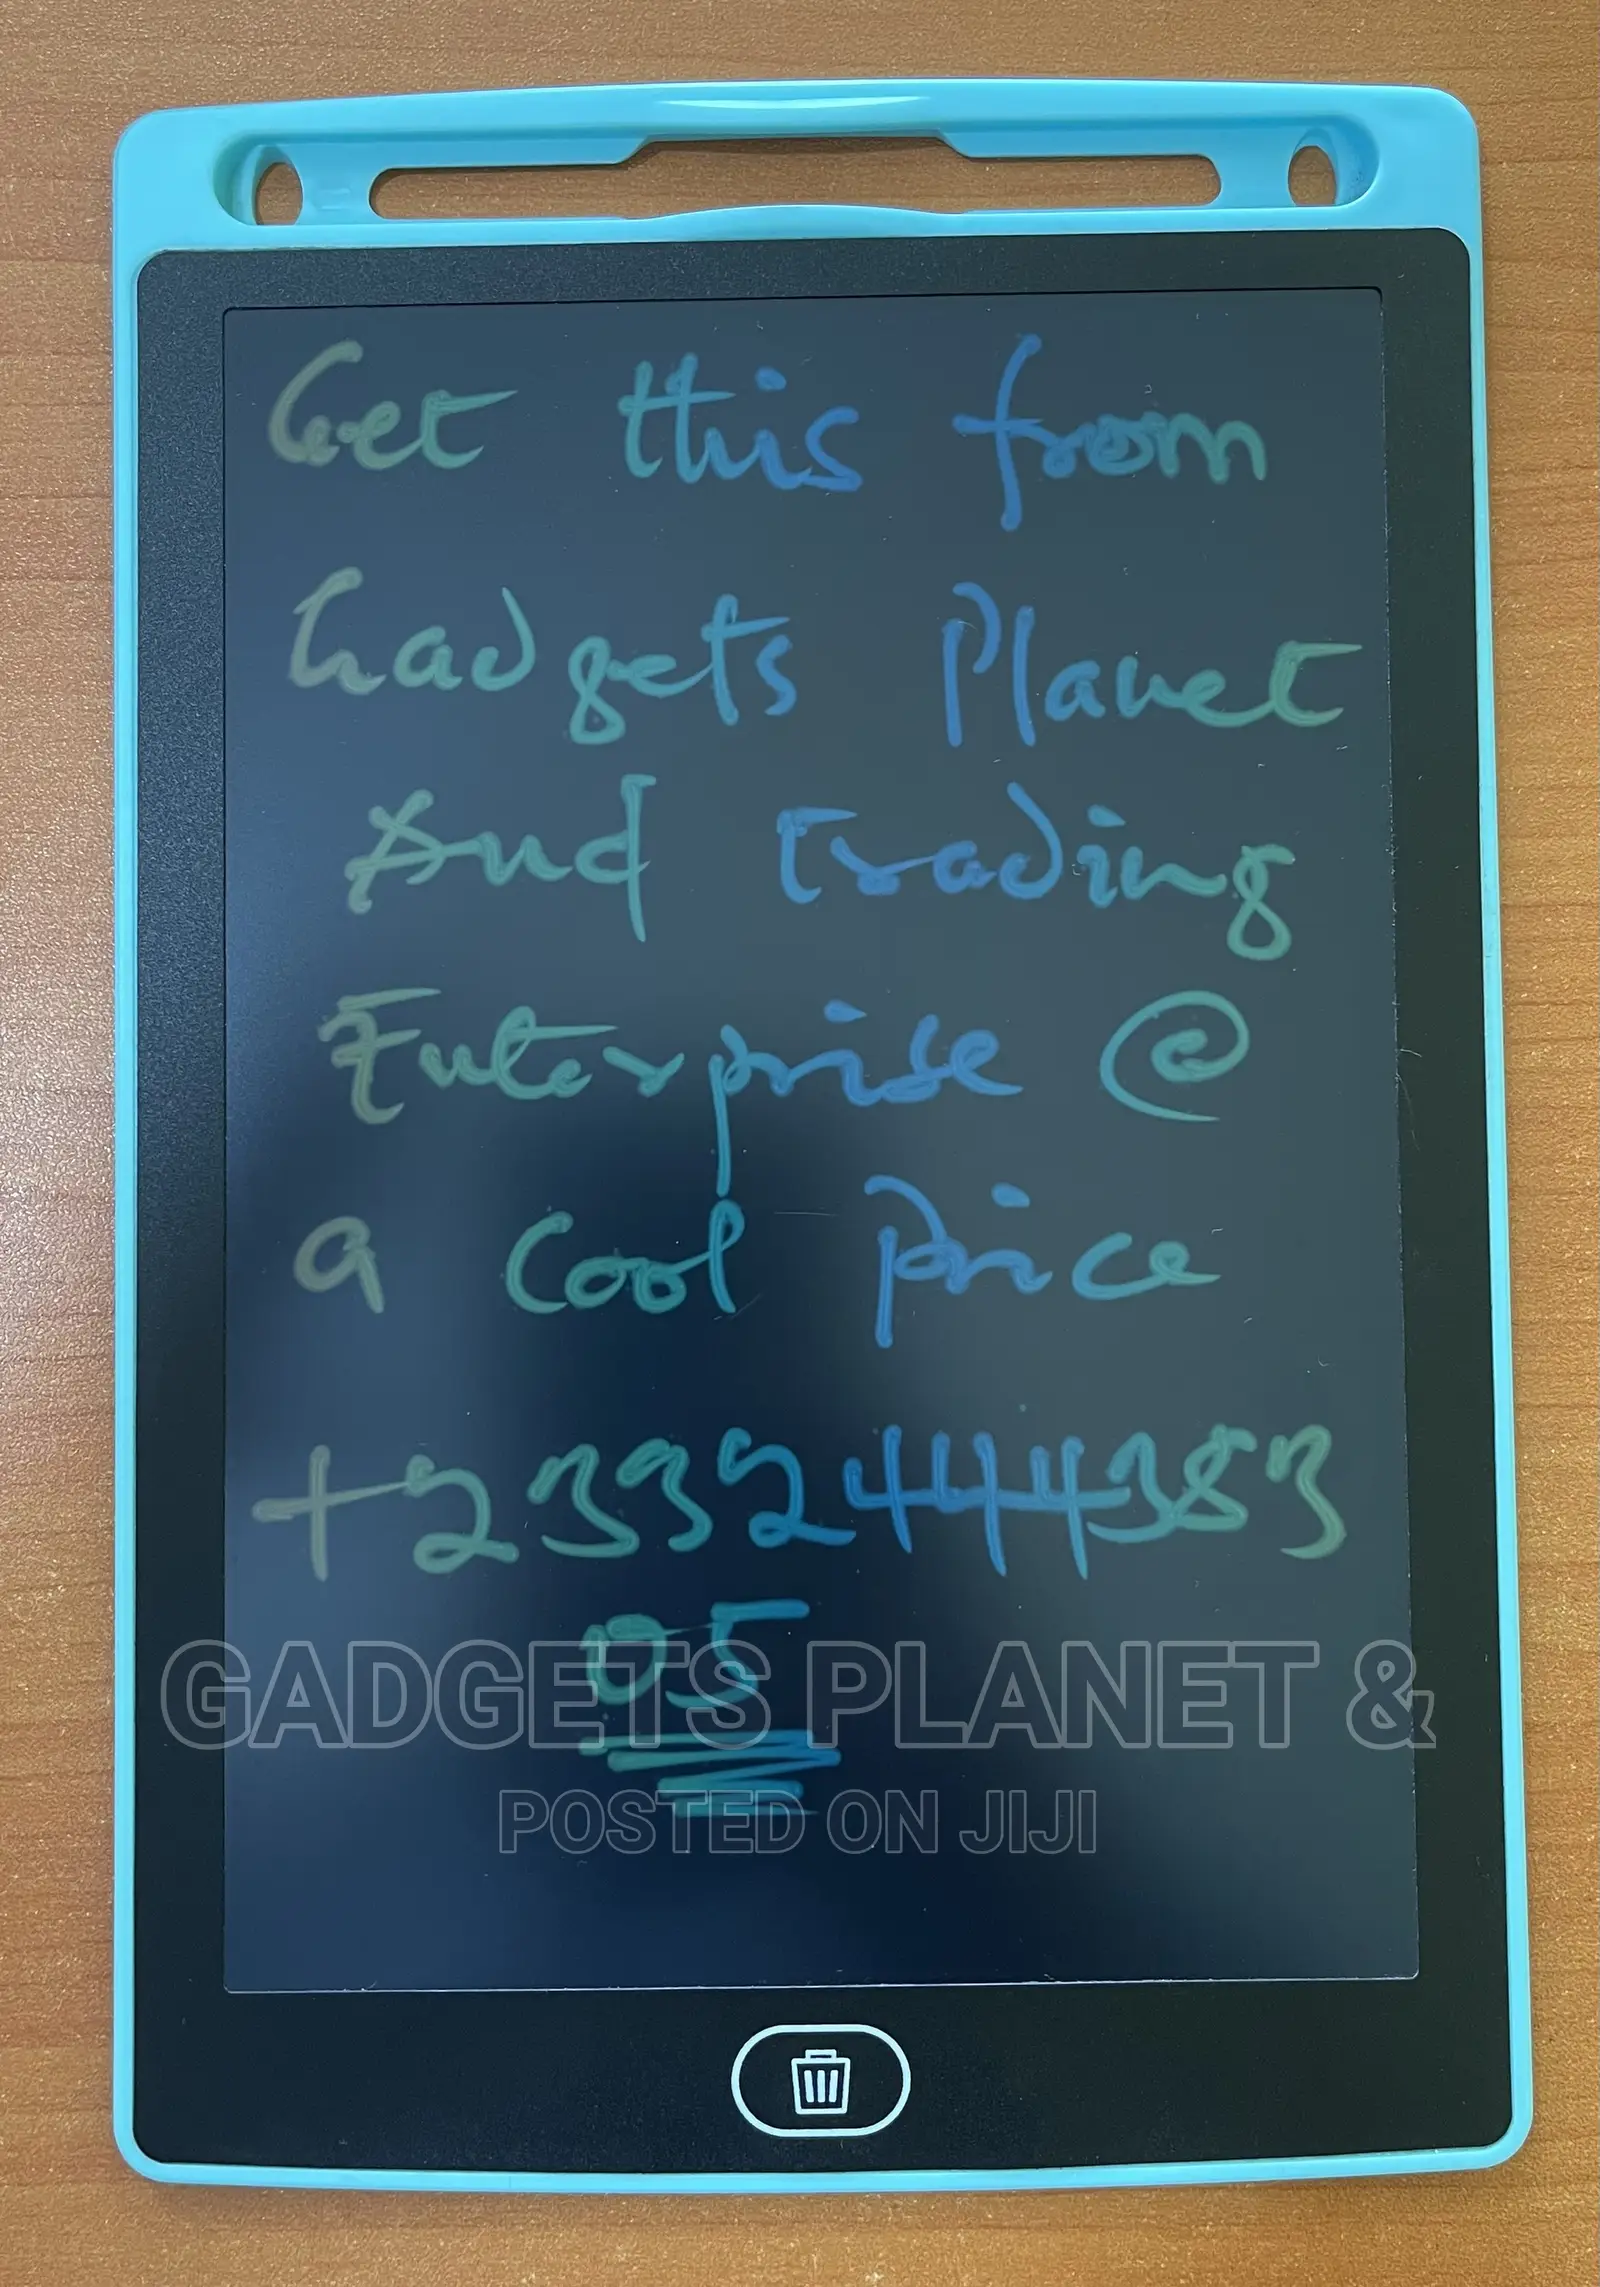 Get this from
Gadgets Planet
And Trading
Enterprise @
a Cool Price
+2332444383
05
GADGETS PLANET &
POSTED ON JIJI